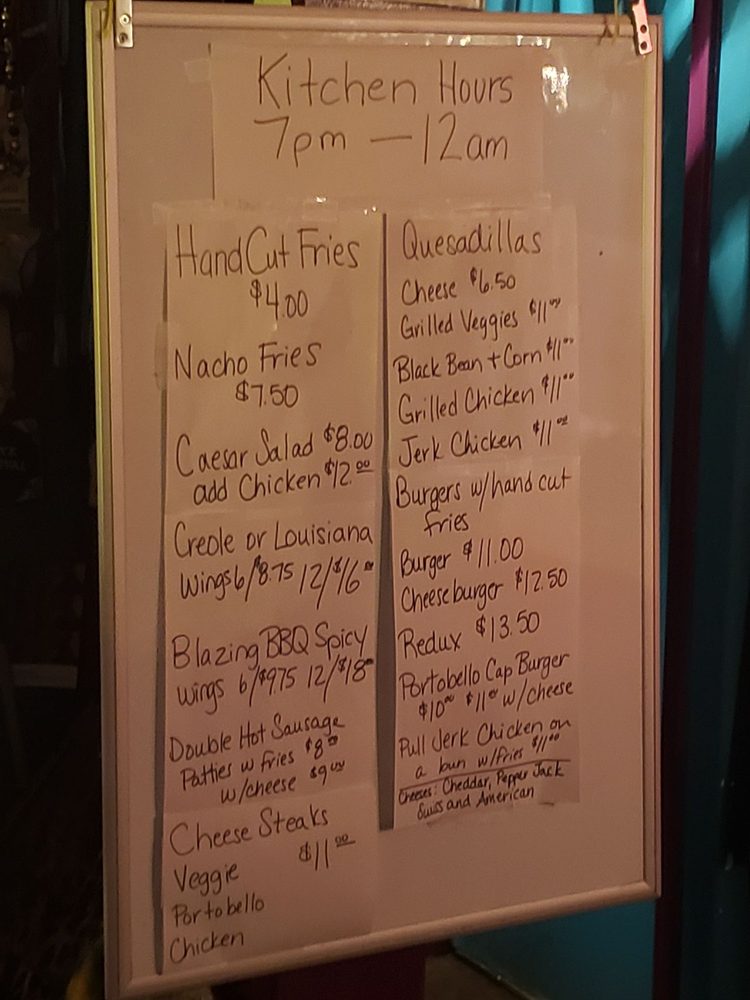 Kitchen Hours
7pm — 12am
Hand Cut Fries
$4.00
Nacho Fries
$7.50
Caesar Salad $8.00
add Chicken $12.00
Creole or Louisiana
Wings 6/$8.75 12/$16.00
Blazing BBQ Spicy
wings 6/$9.75 12/$18.00
Double Hot Sausage
Patties w fries $8.00
w/cheese $9.00
Cheese Steaks
$11.00
Veggie
Portobello
Chicken
Quesadillas
Cheese $6.50
Grilled Veggies $11.00
Black Bean + Corn $11.00
Grilled Chicken $11.00
Jerk Chicken $11.00
Burgers w/hand cut
fries
Burger $11.00
Cheeseburger $12.50
Redux $13.50
Portobello Cap Burger
$10.00 $11.00 w/cheese
Pull Jerk Chicken on
a bun w/fries $11.00
Cheeses: Cheddar, Pepper Jack
Swiss and American